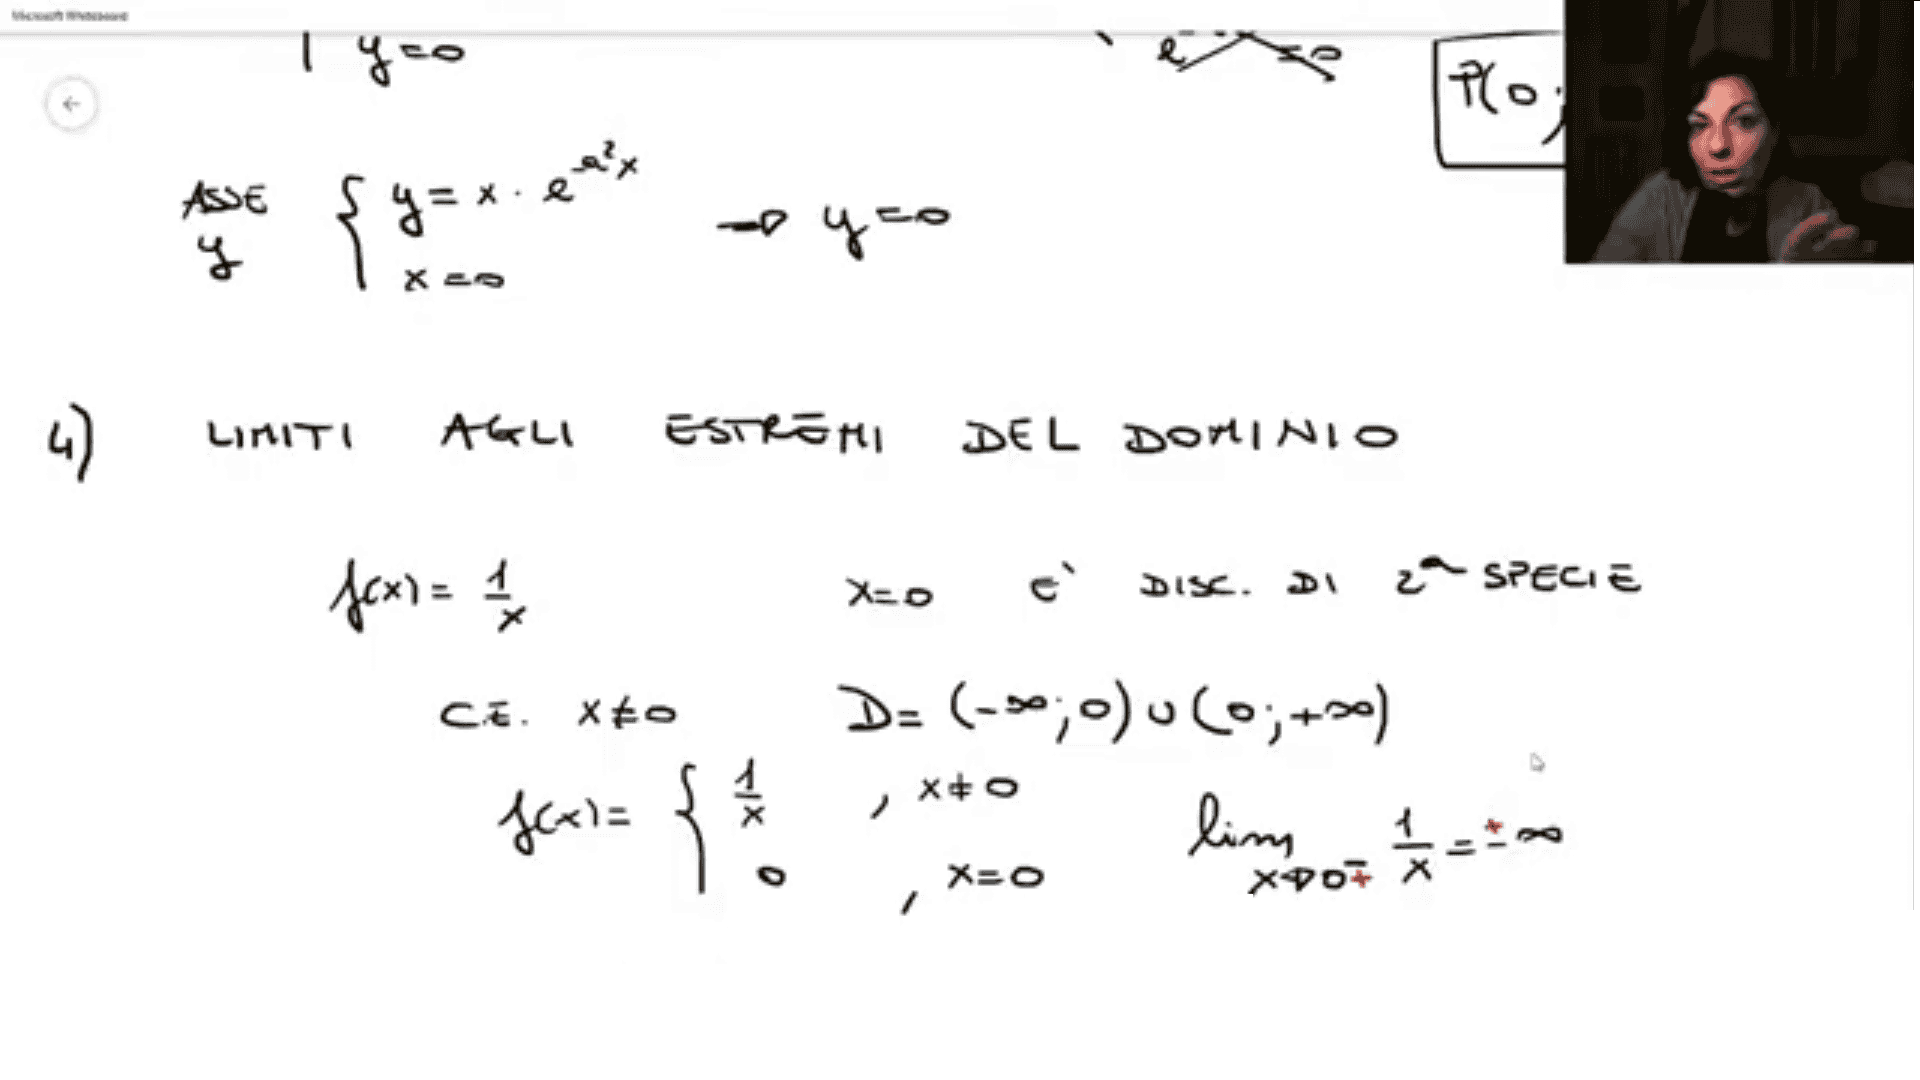 Microsoft Whiteboard
y=0
e =0
P(0;
ASSE y { y = x · e^-a²x → y=0
x=0
4) LIMITI AGLI ESTREMI DEL DOMINIO
f(x) = 1/x x=0 E' DISC. DI 2ª SPECIE
C.E. x≠0 D= (-∞;0) ∪ (0;+∞)
f(x)= { 1/x , x≠0
0 , x=0
lim x→0∓ 1/x = ±∞